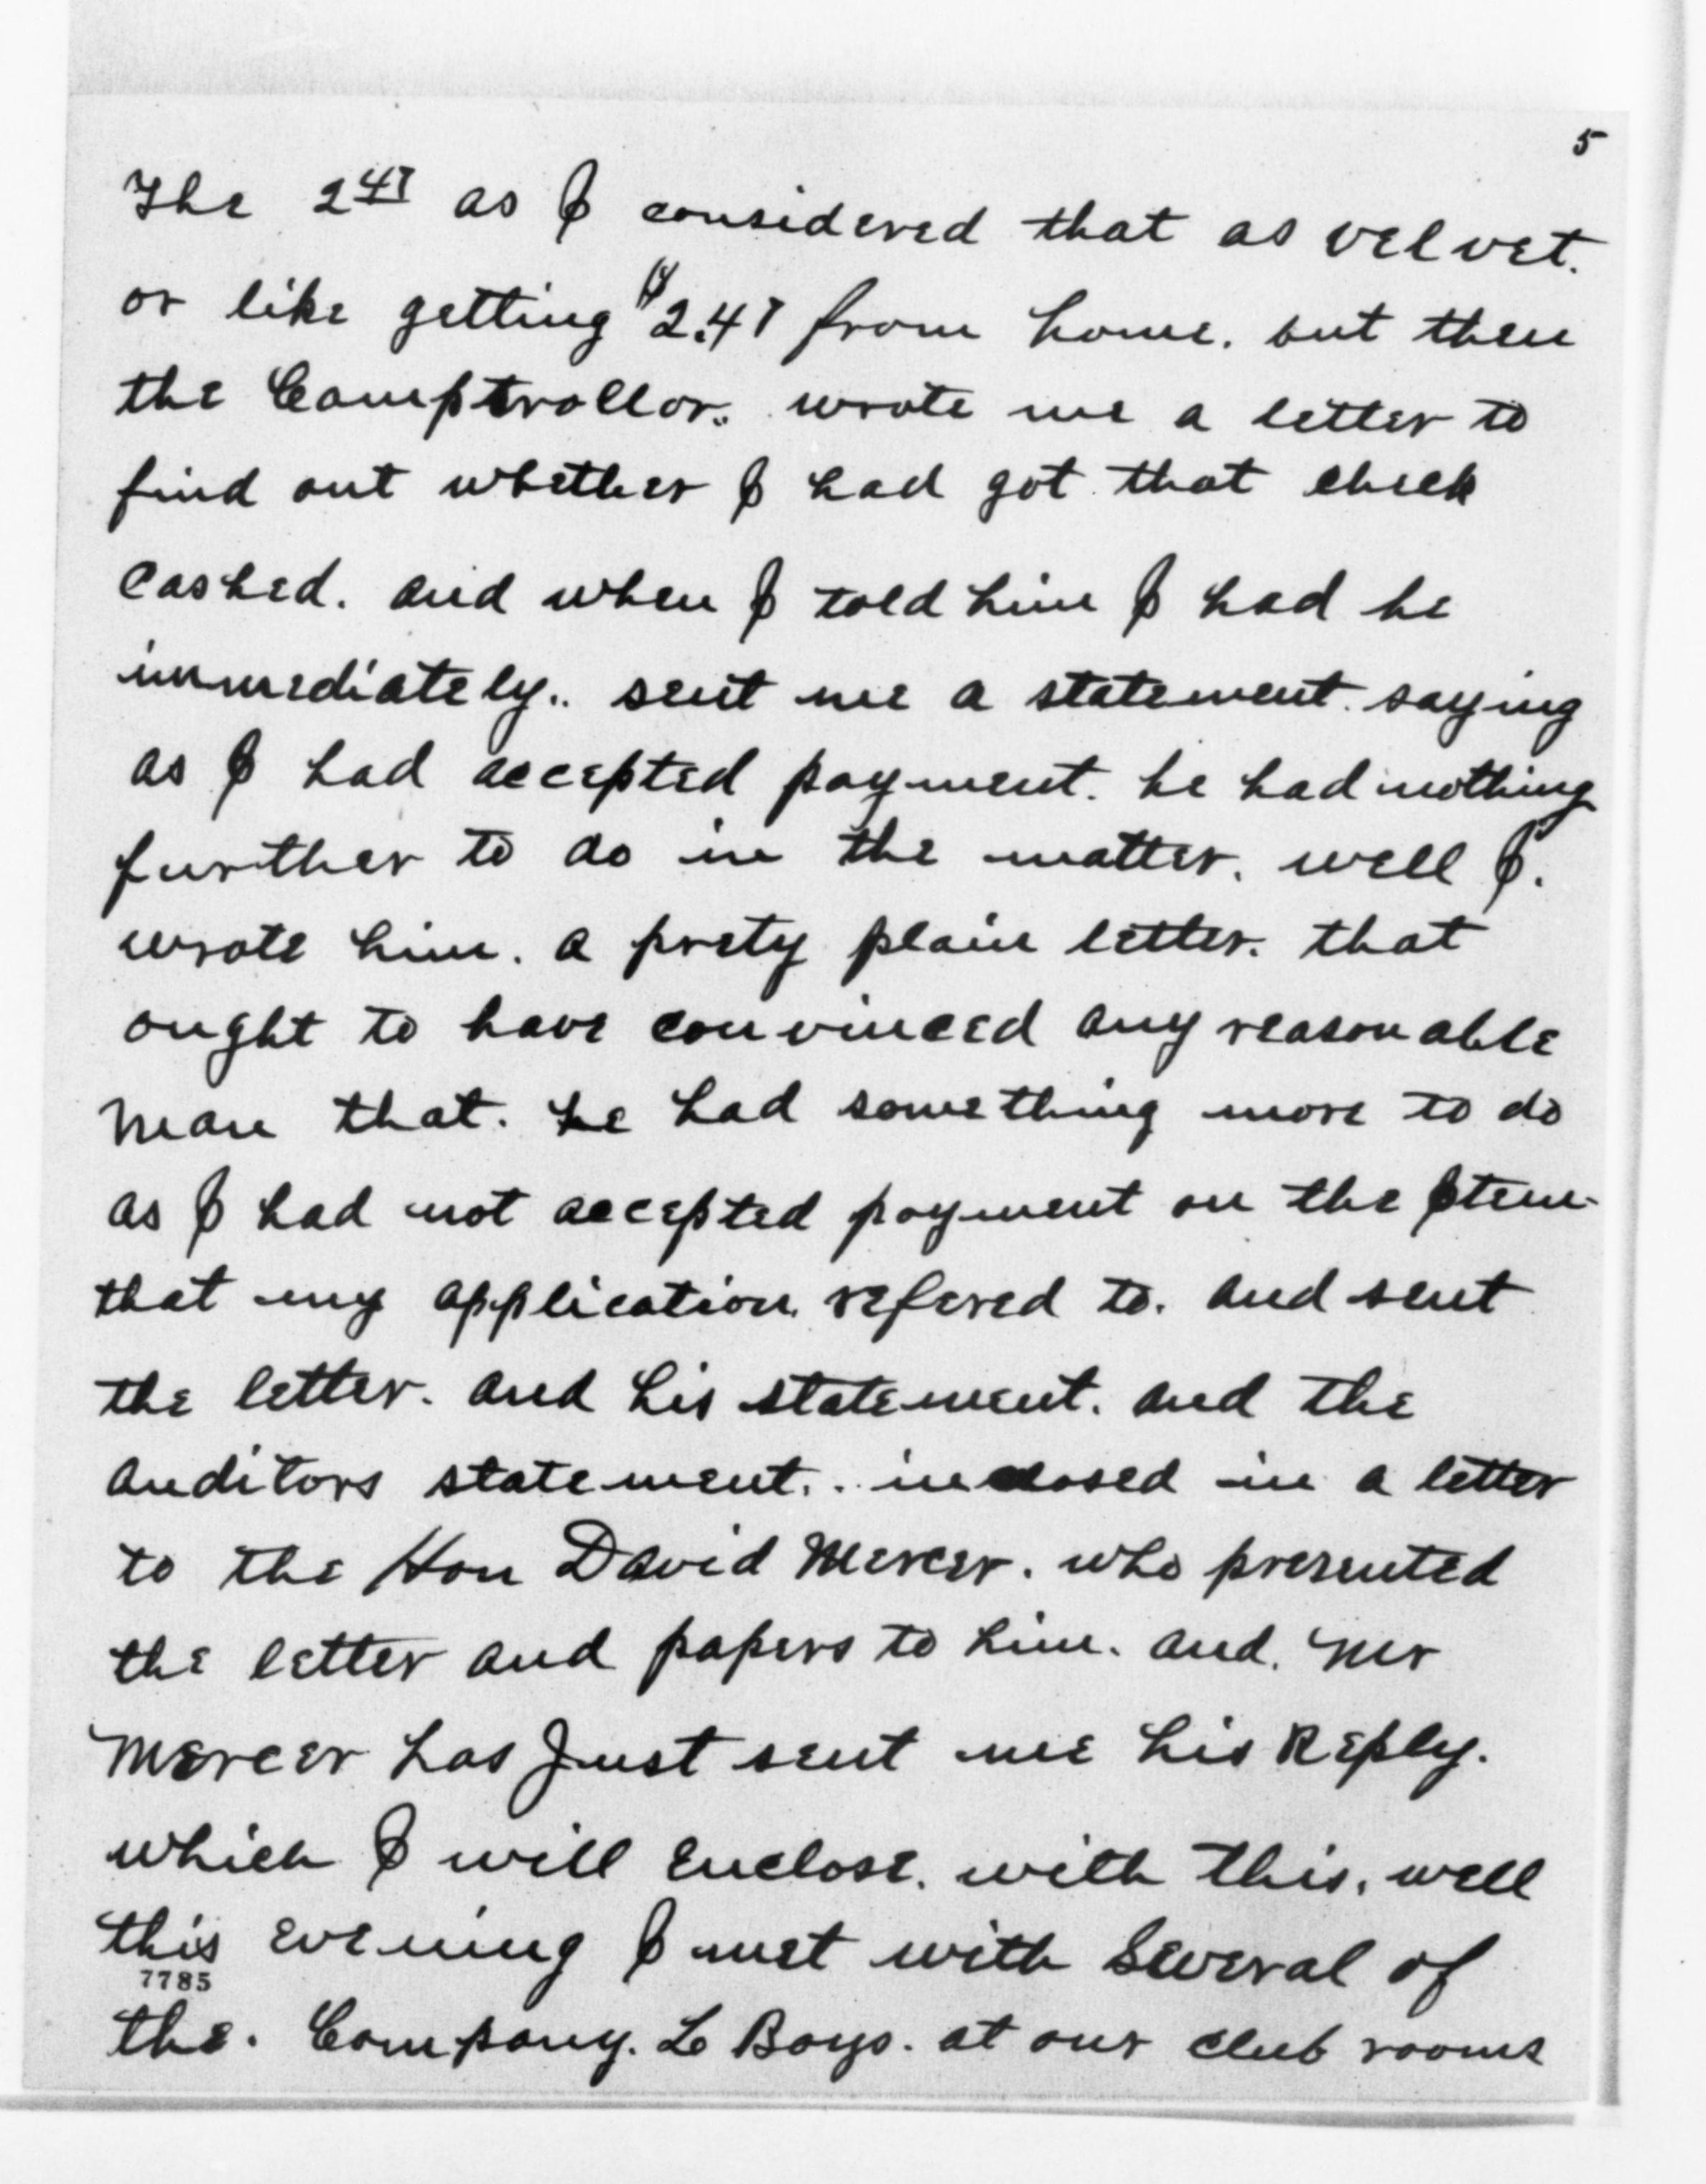 5
The 2 47 as I considered that as velvet.
or like getting $2.47 from home. but then
the Comptrollor. wrote me a letter to
find out whether I had got that check
cashed. and when I told him I had he
immediately.. sent me a statement. saying
as I had accepted payment. he had nothing
further to do in the matter. well I.
wrote him. a prety plain letter. that
ought to have convinced any reasonable
man that. he had something more to do
as I had not accepted payment on the Item
that my application. refered to. and sent
the letter. and his statement. and the
auditors statement.. inclosed in a letter
to the Hon David Mercer. who presented
the letter and papers to him. and. Mr
Mercer has Just sent me his Reply.
which I will Enclose. with this. well
this evening I met with Several of
7785
the. Company. L Boys. at our club rooms